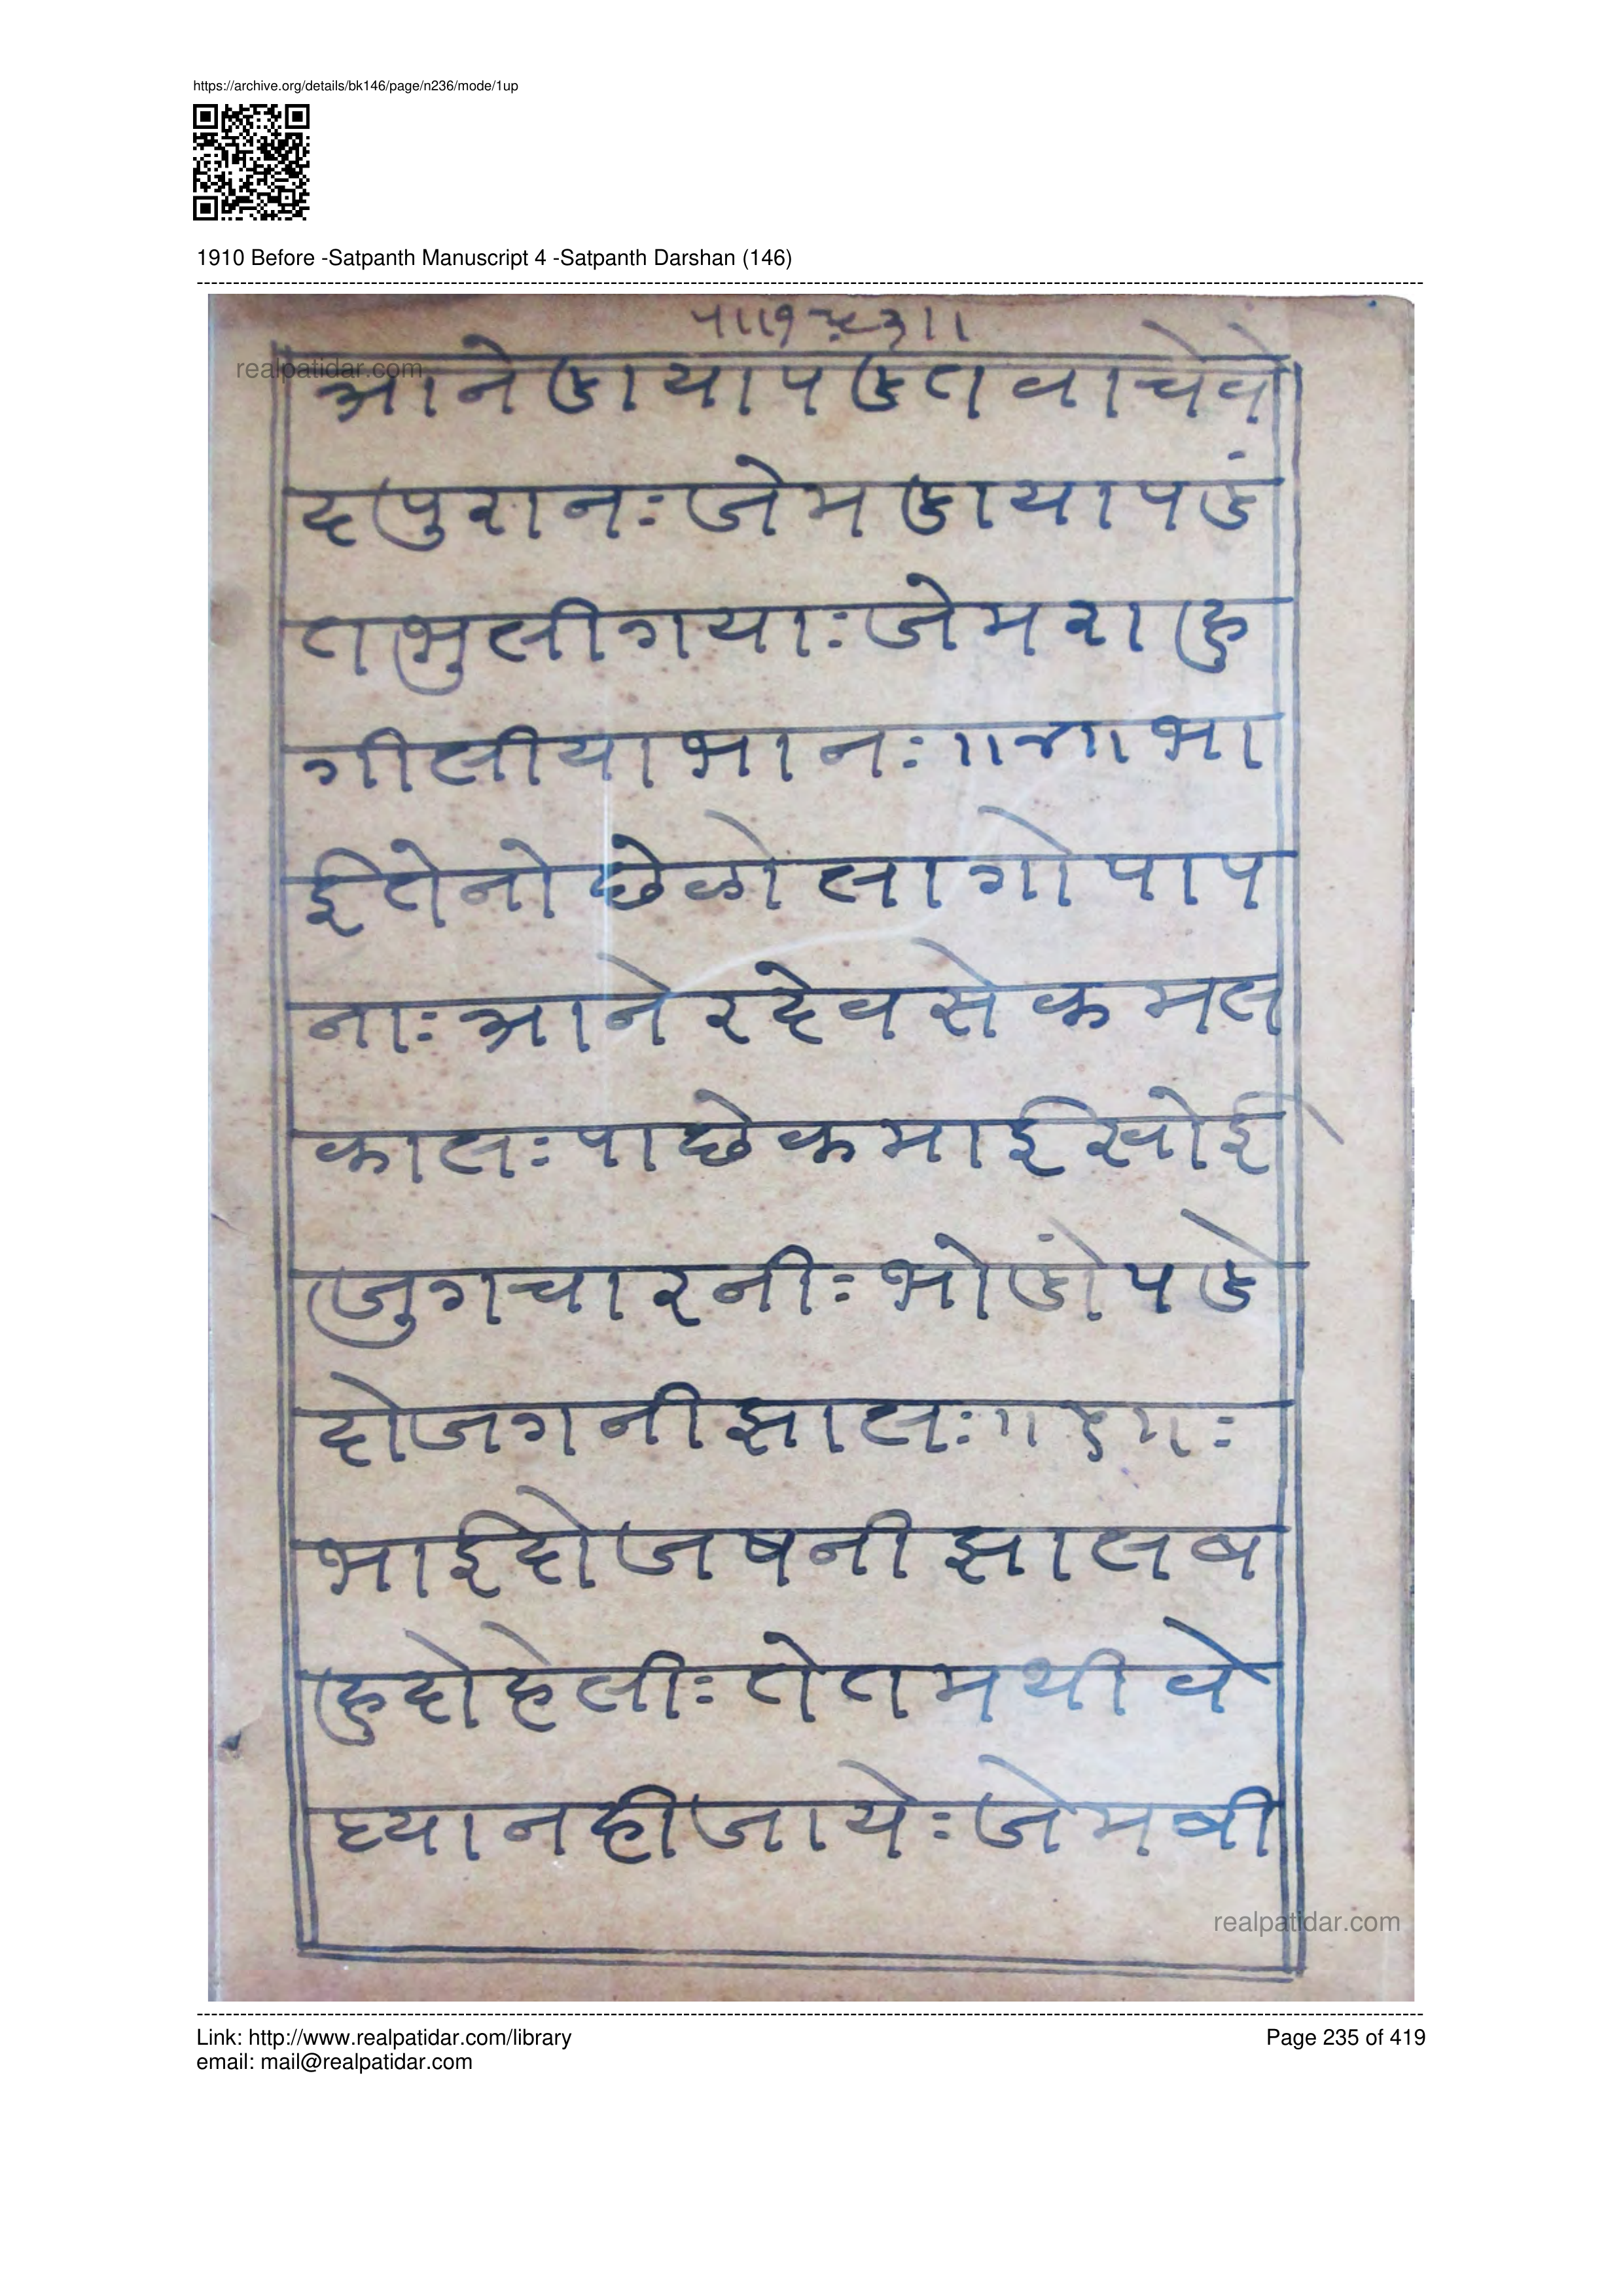 https://archive.org/details/bk146/page/n236/mode/1up
1910 Before -Satpanth Manuscript 4 -Satpanth Darshan (146)
realpatidar.com
आने डाया पडत वाचे वे
द पुरानः जेम डाया पडं
त भुली गयाः जेम राहु
गीलीया भानः ॥४॥ भा
ई तेनो छेळो लागो पाप
नाः आने र देवसे कमल
कालः पाछे कमाई खोई
जुग चारनीः भोडों पडे
दोजगनी झालः ॥ ५ ॥ः
भाई दोजषनी झाल ब
हु दोहेलीः ते तमथी वे
घ्या नही जायेः जेम बी
realpatidar.com
Link: http://www.realpatidar.com/library
Page 235 of 419
email: mail@realpatidar.com